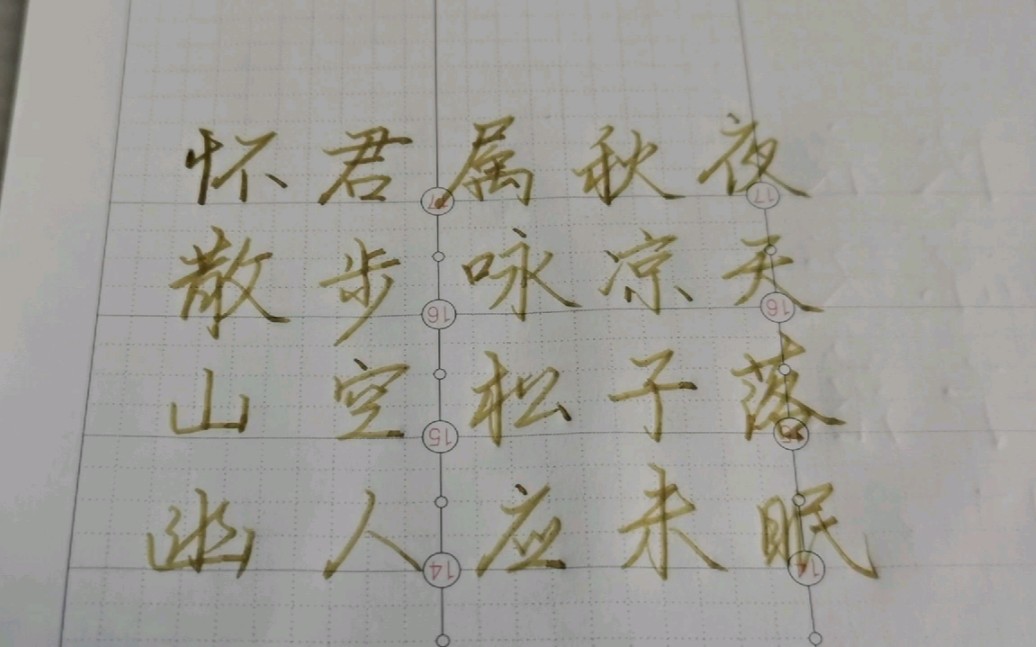 怀君属秋夜
散步咏凉天
山空松子落
幽人应未眠
17
17
16
16
15
15
14
14